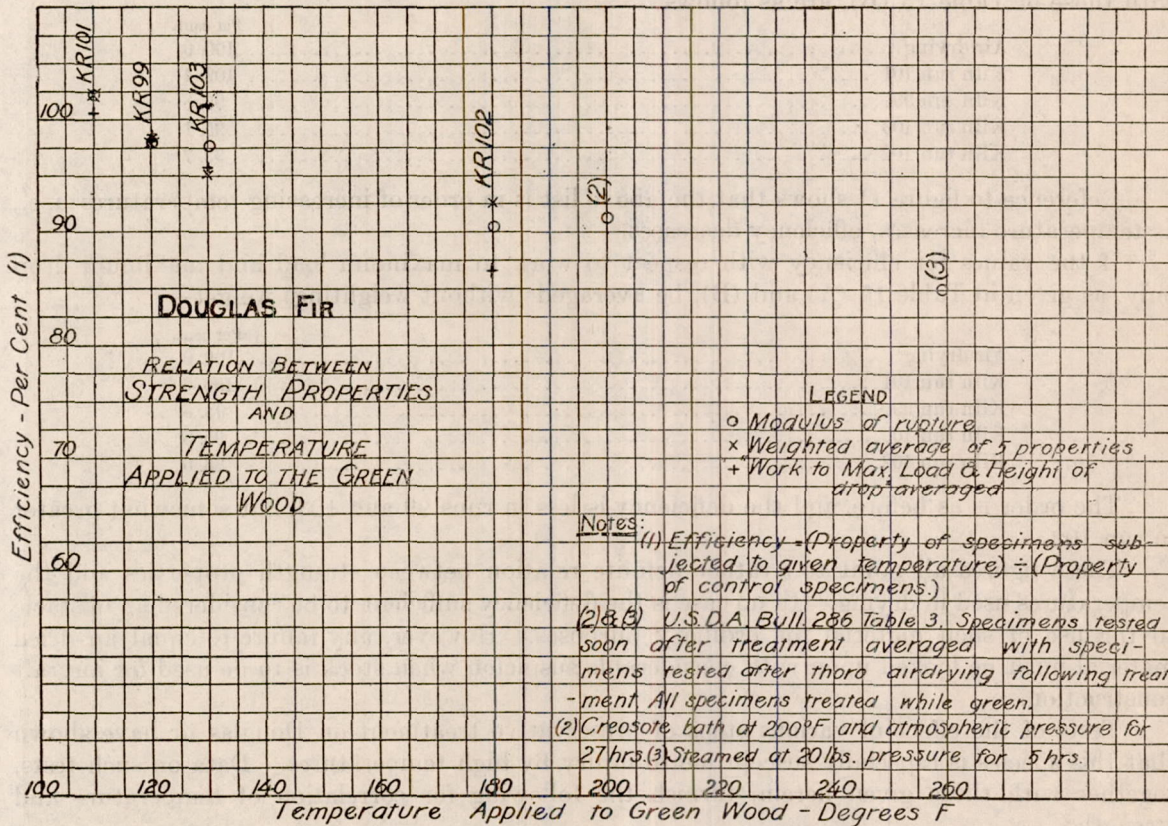 KR101
KR99
KR103
KR102
(2)
(3)
100
90
80
70
60
Efficiency - Per Cent (1)
DOUGLAS FIR
RELATION BETWEEN
STRENGTH PROPERTIES
AND
TEMPERATURE
APPLIED TO THE GREEN
WOOD
LEGEND
o Modulus of rupture
x Weighted average of 5 properties
+ Work to Max. Load & Height of
drop averaged
Notes:
(1) Efficiency = (Property of specimens sub-
jected to given temperature) ÷ (Property
of control specimens.)
(2)&(3) U.S.D.A. Bull. 286 Table 3. Specimens tested
soon after treatment averaged with speci-
mens tested after thoro airdrying following treat
-ment. All specimens treated while green.
(2) Creosote bath at 200°F and atmospheric pressure for
27 hrs. (3) Steamed at 20 lbs. pressure for 5 hrs.
100 120 140 160 180 200 220 240 260
Temperature Applied to Green Wood - Degrees F